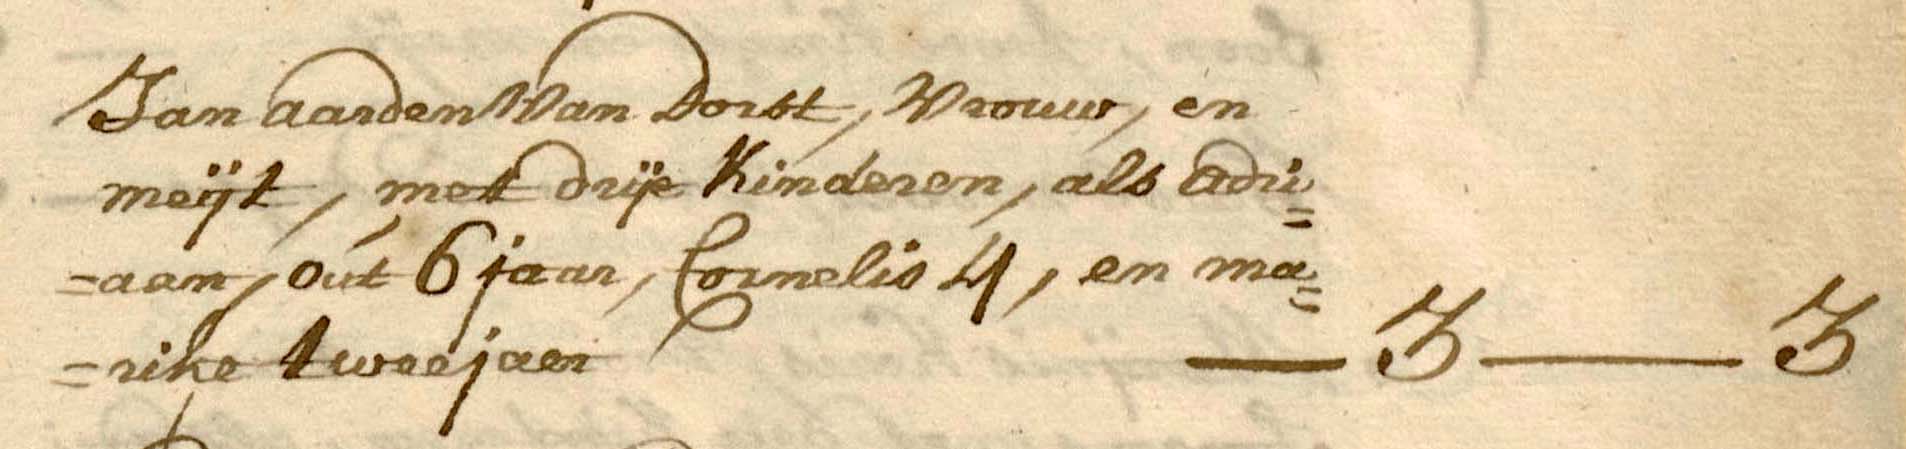 Jan aarden Van Dorst, Vrouw, en
meijt, met drije Kinderen, als adri=
=aan, out 6 jaar, Cornelis 4, en ma=
=rike twee jaer — 3 — 3